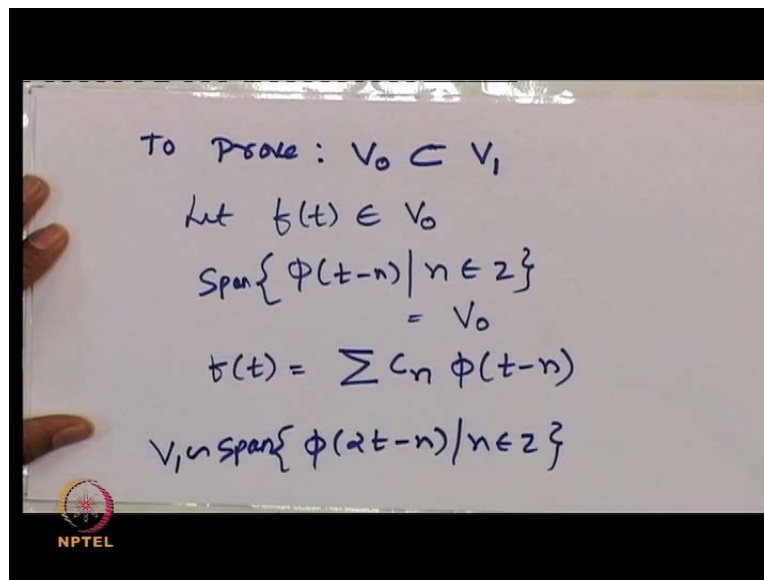 To Prove : V₀ ⊂ V₁
Let f(t) ∈ V₀
Span{ φ(t-n) | n ∈ Z }
= V₀
f(t) = ∑ Cₙ φ(t-n)
V₁ ~ Span{ φ(2t-n) | n ∈ Z }
NPTEL